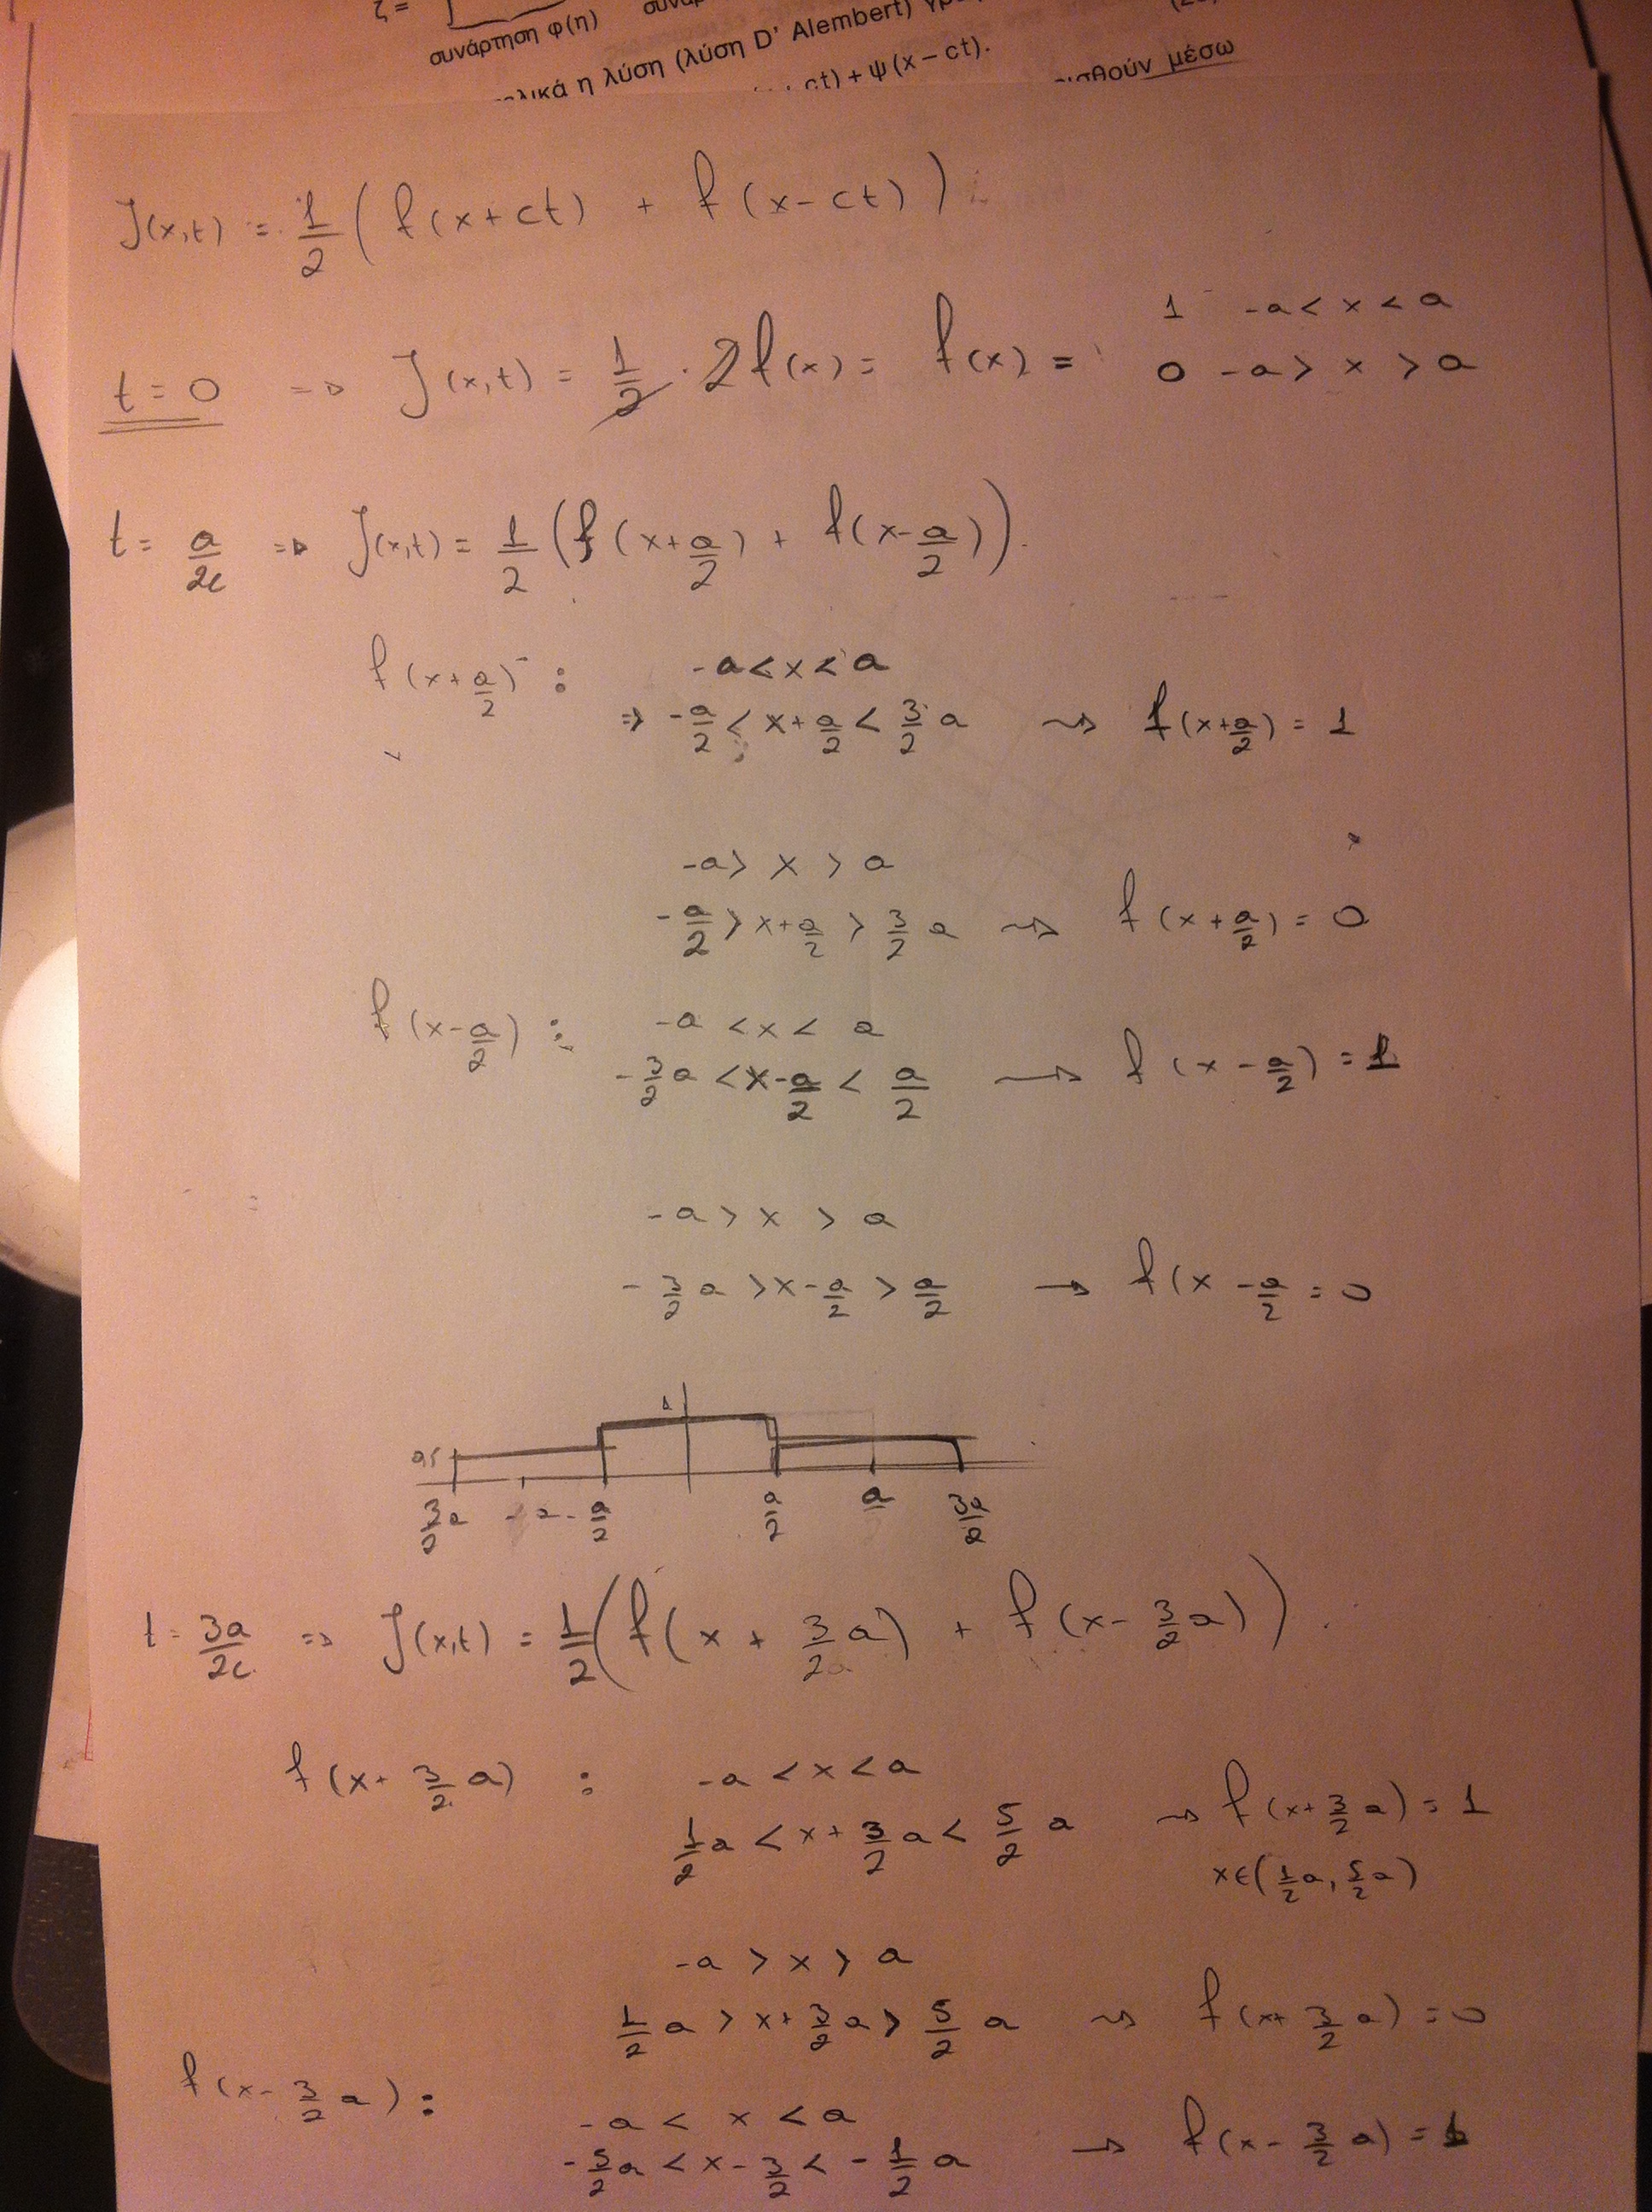 ζ =
συνάρτηση φ(η)
η λύση (λύση D' Alembert)
ct) + ψ(x – ct).
μέσω
J(x,t) = 1/2 ( f(x+ct) + f(x-ct) )
t = 0 => J(x,t) = 1/2 · 2f(x) = f(x) = 1 -a < x < a
0 -a > x > a
t = a/2c => J(x,t) = 1/2 ( f(x+a/2) + f(x-a/2) )
f(x+a/2) : -a < x < a
=> -a/2 < x+a/2 < 3/2 a → f(x+a/2) = 1
-a > x > a
-a/2 > x+a/2 > 3/2 a → f(x+a/2) = 0
f(x-a/2) : -a < x < a
-3/2 a < x-a/2 < a/2 → f(x-a/2) = 1
-a > x > a
-3/2 a > x-a/2 > a/2 → f(x-a/2 = 0
1
0,5
3/2 a -a -a/2 a/2 a 3a/2
t = 3a/2c => J(x,t) = 1/2 ( f(x + 3/2 a) + f(x - 3/2 a) )
f(x+ 3/2 a) : -a < x < a
1/2 a < x+ 3/2 a < 5/2 a → f(x+ 3/2 a) = 1
x∈(1/2 a, 5/2 a)
-a > x > a
1/2 a > x+ 3/2 a > 5/2 a → f(x+ 3/2 a) = 0
f(x- 3/2 a) :
-a < x < a
-5/2 a < x- 3/2 < -1/2 a → f(x- 3/2 a) = 1